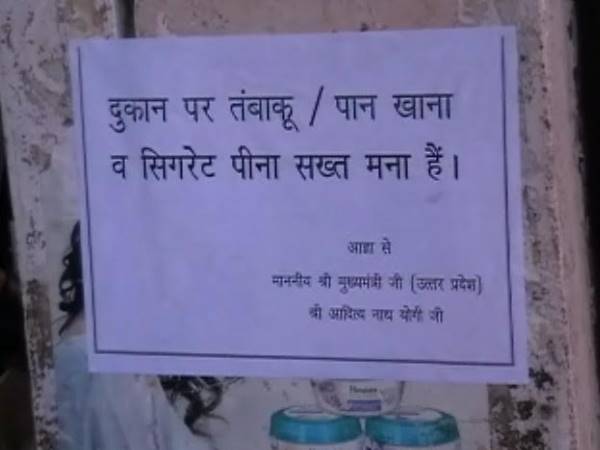 दुकान पर तंबाकू / पान खाना
व सिगरेट पीना सख्त मना हैं।
आज्ञा से
माननीय श्री मुख्यमंत्री जी (उत्तर प्रदेश)
श्री आदित्य नाथ योगी जी